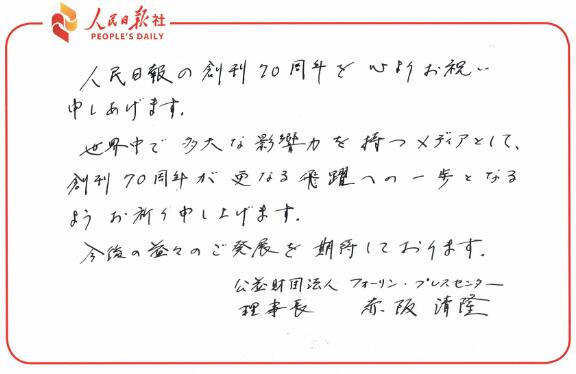 人民日报社
PEOPLE'S DAILY
人民日報の創刊70周年を心よりお祝い
申しあげます。
世界中で多大な影響力を持つメディアとして、
創刊70周年が更なる飛躍への一歩となる
ようお祈り申し上げます。
今後の益々のご発展を期待しております。
公益財団法人 フォーリン・プレスセンター
理事長 赤阪清隆